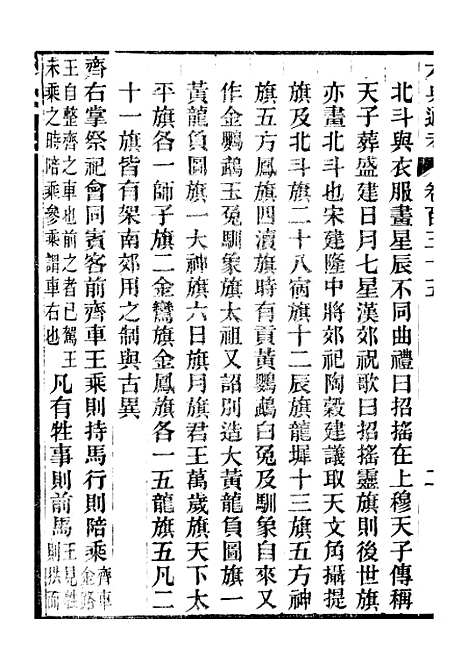 六典通考 卷百三十五
北斗與衣服畫星辰不同曲禮曰招搖在上穆天子傳稱
天子葬盛建日月七星漢郊祝歌曰招搖靈旗則後世旗
亦畫北斗也宋建隆中將郊祀陶穀建議取天文角攝提
旗及北斗旗二十八宿旗十二辰旗龍墀十三旗五方神
旗五方鳳旗四瀆旗時有貢黃鸚鵡白兔及馴象自來又
作金鸚鵡玉兔馴象旗太祖又詔別造大黃龍負圖旗一
黃龍負圖旗一大神旗六日旗月旗君王萬歲旗天下太
平旗各一師子旗二金鸞旗金鳳旗各一五龍旗五凡二
十一旗皆有架南郊用之制與古異
齊右掌祭祀會同賓客前齊車王乘則持馬行則陪乘齊車金路
王自整齊之車也前之者已駕王
未乘之時陪乘參乘謂車右也凡有牲事則前馬王見牲則拱而